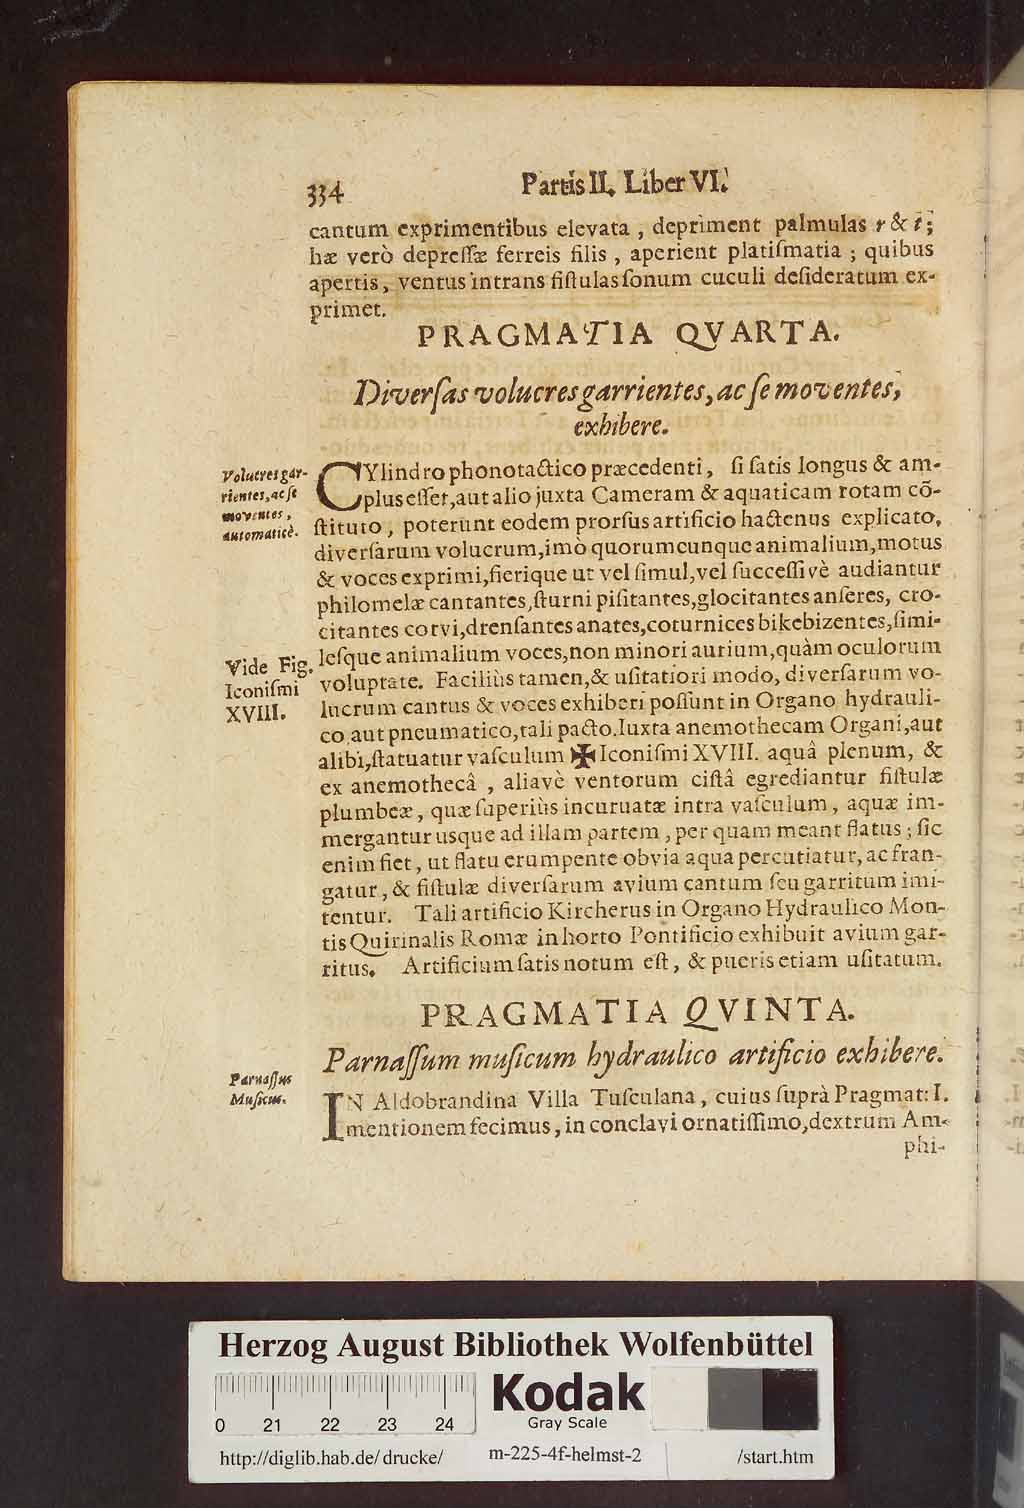 334 Partis II. Liber VI.
cantum exprimentibus elevata, depriment palmulas r & t;
hæ verò depreſſæ ferreis filis, aperient platiſmatia; quibus
apertis, ventus intrans fiſtulas ſonum cuculi deſideratum ex-
primet.
PRAGMATIA QVARTA.
Diverſas volucres garrientes, ac ſe moventes,
exhibere.
Volucres gar-
rientes, ac ſe
moventes,
automaticè.
CYlindro phonotactico præcedenti, ſi ſatis longus & am-
plus eſſet, aut alio juxta Cameram & aquaticam rotam cõ-
ſtituto, poterunt eodem prorſus artificio hactenus explicato,
diverſarum volucrum, imò quorumcunque animalium, motus
& voces exprimi, fierique ut vel ſimul, vel ſucceſſivè audiantur
philomelæ cantantes, ſturni piſitantes, glocitantes anſeres, cro-
citantes corvi, drenſantes anates, coturnices bikebizentes, ſimi-
leſque animalium voces, non minori aurium, quàm oculorum
voluptate. Faciliùs tamen, & uſitatiori modo, diverſarum vo-
lucrum cantus & voces exhiberi poſſunt in Organo hydrauli-
co, aut pneumatico, tali pacto. Iuxta anemothecam Organi, aut
alibi, ſtatuatur vaſculum ✠ Iconiſmi XVIII. aquâ plenum, &
ex anemothecâ, aliavè ventorum ciſtâ egrediantur fiſtulæ
plumbeæ, quæ ſuperiùs incuruatæ intra vaſculum, aquæ im-
mergantur usque ad illam partem, per quam meant flatus; ſic
enim fiet, ut flatu erumpente obvia aqua percutiatur, ac fran-
gatur, & fiſtulæ diverſarum avium cantum ſeu garritum imi-
tentur. Tali artificio Kircherus in Organo Hydraulico Mon-
tis Quirinalis Romæ in horto Pontificio exhibuit avium gar-
ritus. Artificium ſatis notum eſt, & pueris etiam uſitatum.
Vide Fig.
Iconiſmi
XVIII.
PRAGMATIA QVINTA.
Parnaſſum muſicum hydraulico artificio exhibere.
Parnaſſus
Muſicus.
IN Aldobrandina Villa Tuſculana, cuius ſuprà Pragmat: I.
mentionem fecimus, in conclavi ornatiſſimo, dextrum Am-
phi-
Herzog August Bibliothek Wolfenbüttel
0 21 22 23 24
Kodak
Gray Scale
http://diglib.hab.de/drucke/ m-225-4f-helmst-2 /start.htm